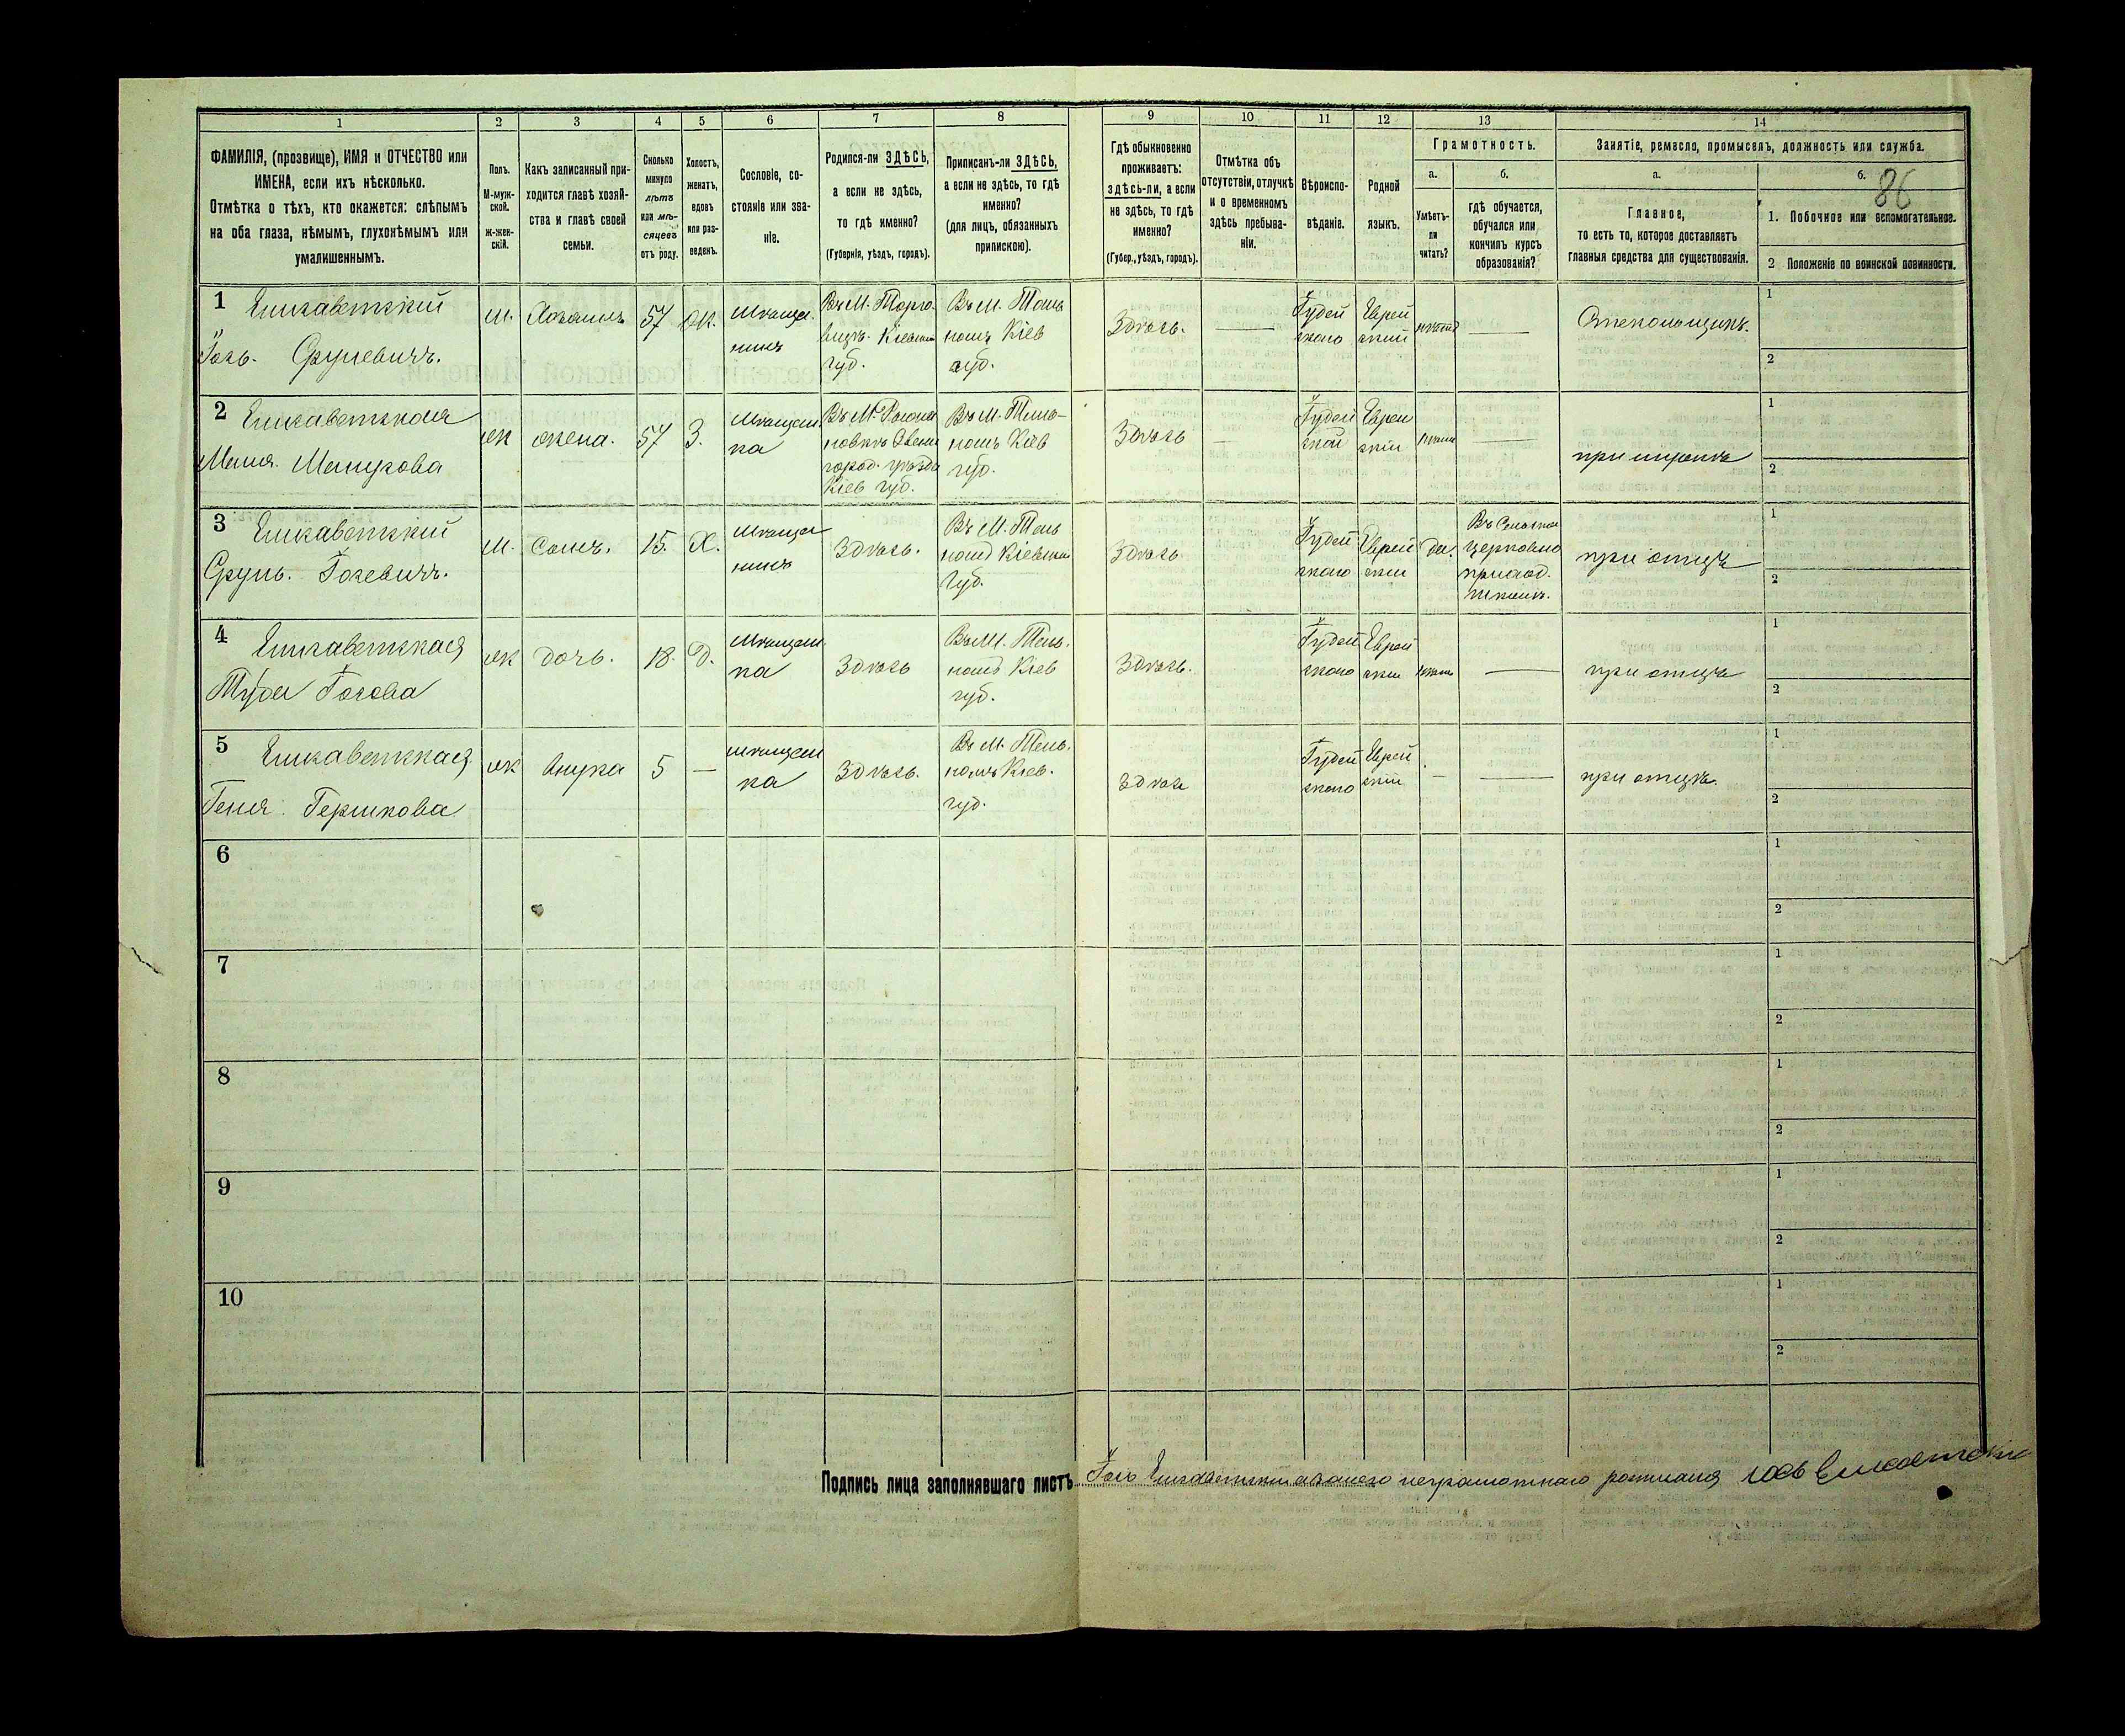 1
2
3
4
5
6
7
8
9
10
11
12
13
14
ФАМИЛІЯ, (прозвище), ИМЯ и ОТЧЕСТВО или
ИМЕНА, если ихъ нѣсколько.
Отмѣтка о тѣхъ, кто окажется: слѣпымъ
на оба глаза, нѣмымъ, глухонѣмымъ или
умалишеннымъ.
Полъ.
М-муж-
ской.
ж-жен-
скій.
Какъ записанный при-
ходится главѣ хозяй-
ства и главѣ своей
семьи.
Сколько
минуло
лѣтъ
или мѣ-
сяцевъ
отъ роду.
Холостъ,
женатъ,
вдовъ
или раз-
веденъ.
Сословіе, со-
стояніе или зва-
ніе.
Родился-ли ЗДѢСЬ,
а если не здѣсь,
то гдѣ именно?
(Губернія, уѣздъ, городъ).
Приписанъ-ли ЗДѢСЬ,
а если не здѣсь, то гдѣ
именно?
(для лицъ, обязанныхъ
припискою).
Гдѣ обыкновенно
проживаетъ:
здѣсь-ли, а если
не здѣсь, то гдѣ
именно?
(Губер., уѣздъ, городъ).
Отмѣтка объ
отсутствіи, отлучкѣ
и о временномъ
здѣсь пребыва-
ніи.
Вѣроиспо-
вѣданіе.
Родной
языкъ.
Грамотность.
а.
Умѣетъ-
ли
читать?
б.
гдѣ обучается,
обучался или
кончилъ курсъ
образованія?
Занятіе, ремесло, промыселъ, должность или служба.
а.
Главное,
то есть то, которое доставляетъ
главныя средства для существованія.
б.
86
1. Побочное или вспомогательное.
2 Положеніе по воинской повинности.
1 Елисаветскій
Іось. Срулевичъ.
М.
Хозяинъ
57
Ж.
Мѣща-
нинъ
Въ М. Торго-
вицѣ. Кіевской
губ.
Въ М.
Кіев
губ.
Здѣсь.
Іудей
скаго
Еврей
скій
Стекольщикъ.
1
2
2 Елисаветская
Маня.
ж
жена.
57
З.
Мѣщан
ка
Въ М.
город. уѣзда
Кіев губ.
Въ М.
Кіев
губ.
Здѣсь
Іудей
ской
Еврей
скій
при
1
2
3 Елисаветскій
Сруль. Іосевичъ.
М.
Сынъ.
15.
Х.
Мѣща
нинъ
Здѣсь.
Въ М.
Кіевской
Губ.
Здѣсь
Іудей
скаго
Еврей
скій
да.
Въ
церковно
приход.
школѣ.
при отцѣ
1
2
4 Елисаветская
Іосева
ж
дочь.
18.
Д.
Мѣщан
ка
Здѣсь
Въ М.
Кіев
губ.
Здѣсь.
Іудей
скаго
Еврей
скій
при отцѣ
1
2
5 Елисаветская
Геня. Гершкова
ж
Внучка
5
мѣщан
ка
Здѣсь.
Въ М.
Кіев.
губ.
Здѣсь
Іудей
скаго
Еврей
скій
при отцѣ.
1
2
6
1
2
7
1
2
8
1
2
9
1
2
10
1
2
Подпись лица заполнявшаго листъ Іось Елисаветскій неграмотнаго